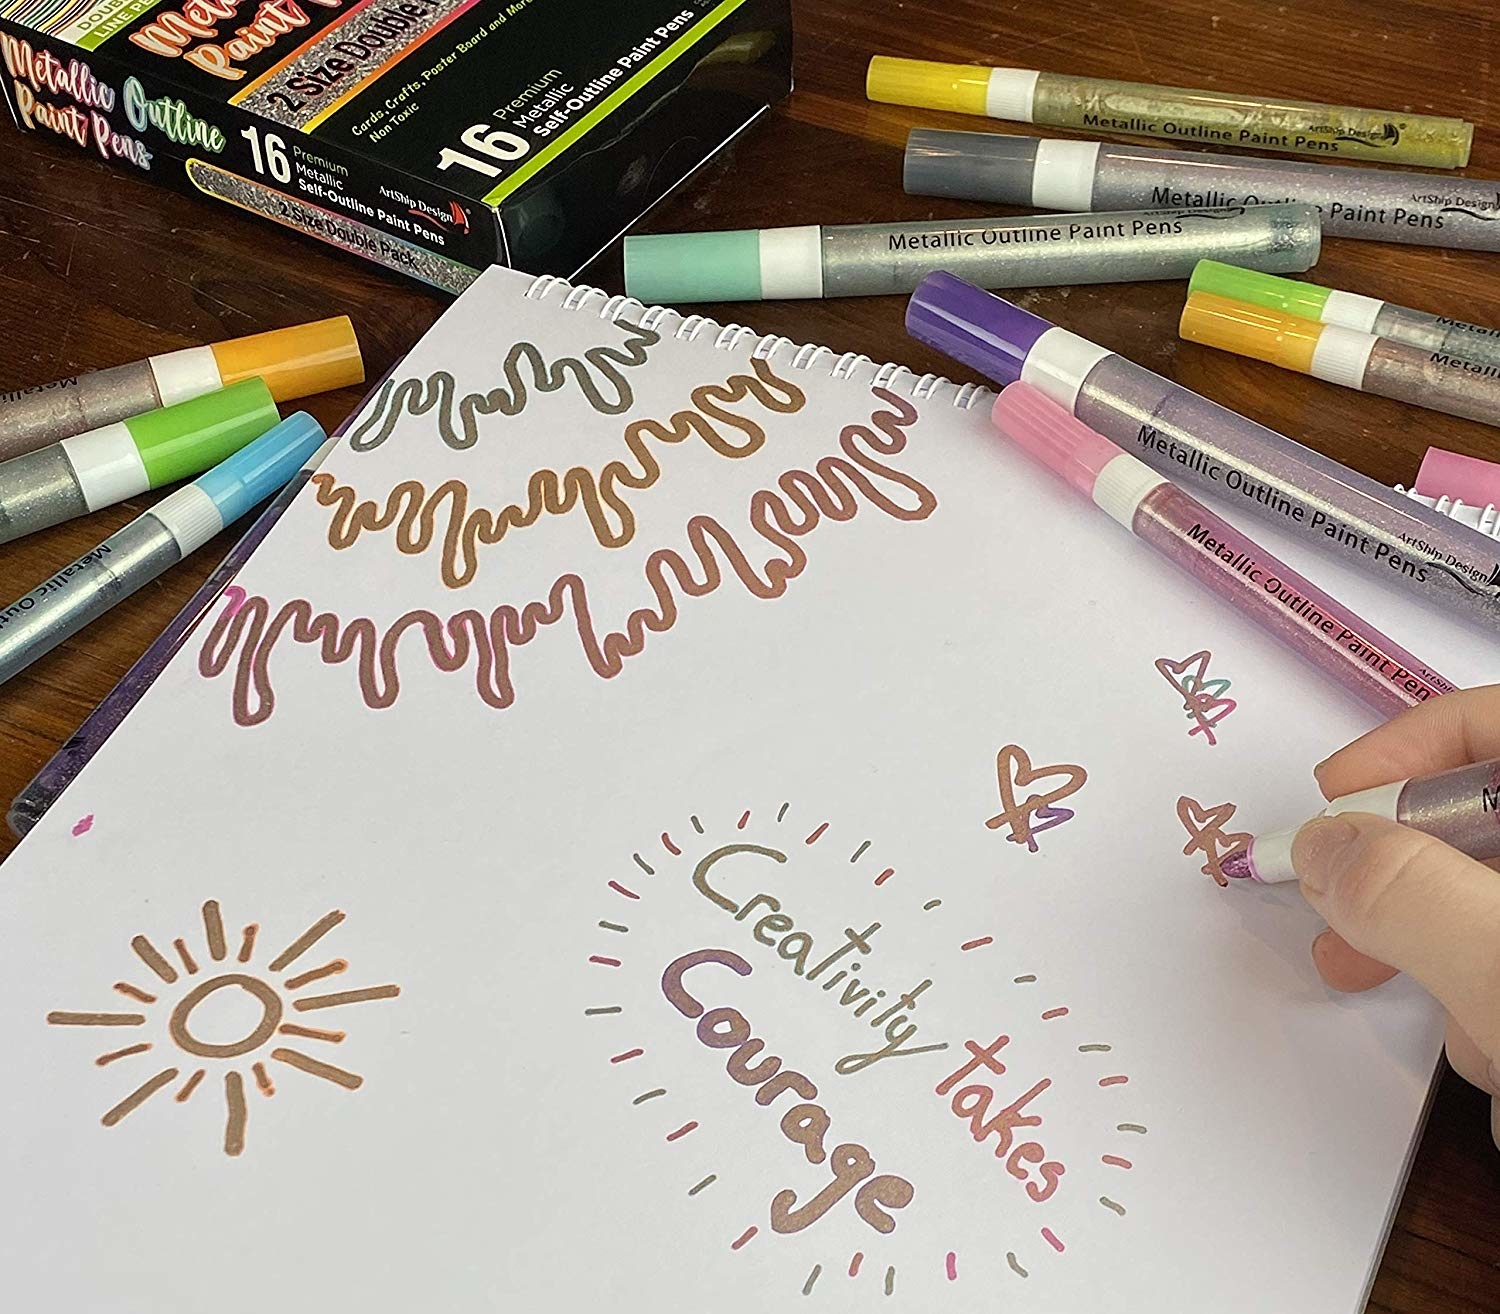 DOUB
LINE PE
Meta
Paint P
2 Size Double
Cards, Crafts, Poster Board and More
Non Toxic
16 Premium
Metallic
Self-Outline Paint Pens
Metallic Outline
Paint Pens
16 Premium
Metallic
Self-Outline Paint Pens
ArtShip Design
2 Size Double Pack
ArtShip Design
Metallic Outline Paint Pens
ArtShip Design
Metallic Outline Paint Pens
ArtShip Design
Metallic Outline Paint Pens
Metallic
Metallic
Metallic Outline Paint Pens
ArtShip Design
Metallic Outline Paint Pen
ArtShip
Metalli
Metallic Out
M
Creativity
takes
Courage